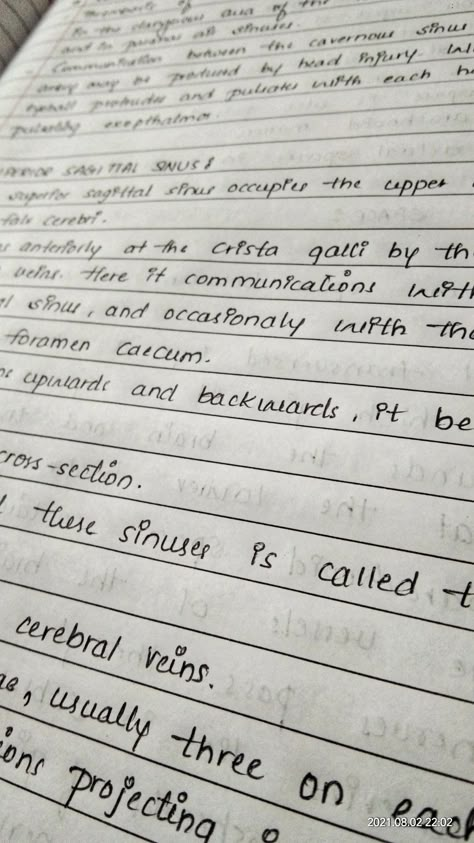 to the dangerous area of the
and to paranas air sinuses.
Communication between the cavernous sinus
artery may be produced by head injury.
eyeball protrudes and pulsates with each
pulsating exopthalmos.
SAGITTAL SINUS:
superior sagittal sinus occupies the upper
falx cerebri.
anteriorly at the crista galli by th
veins. Here it communications with
al sinus, and occasionaly with the
foramen caecum.
upwards and backwards, it be
cross-section.
these sinuses is called t
cerebral veins.
ae, usually three on each
ions projecting
2021.08.02 22:02